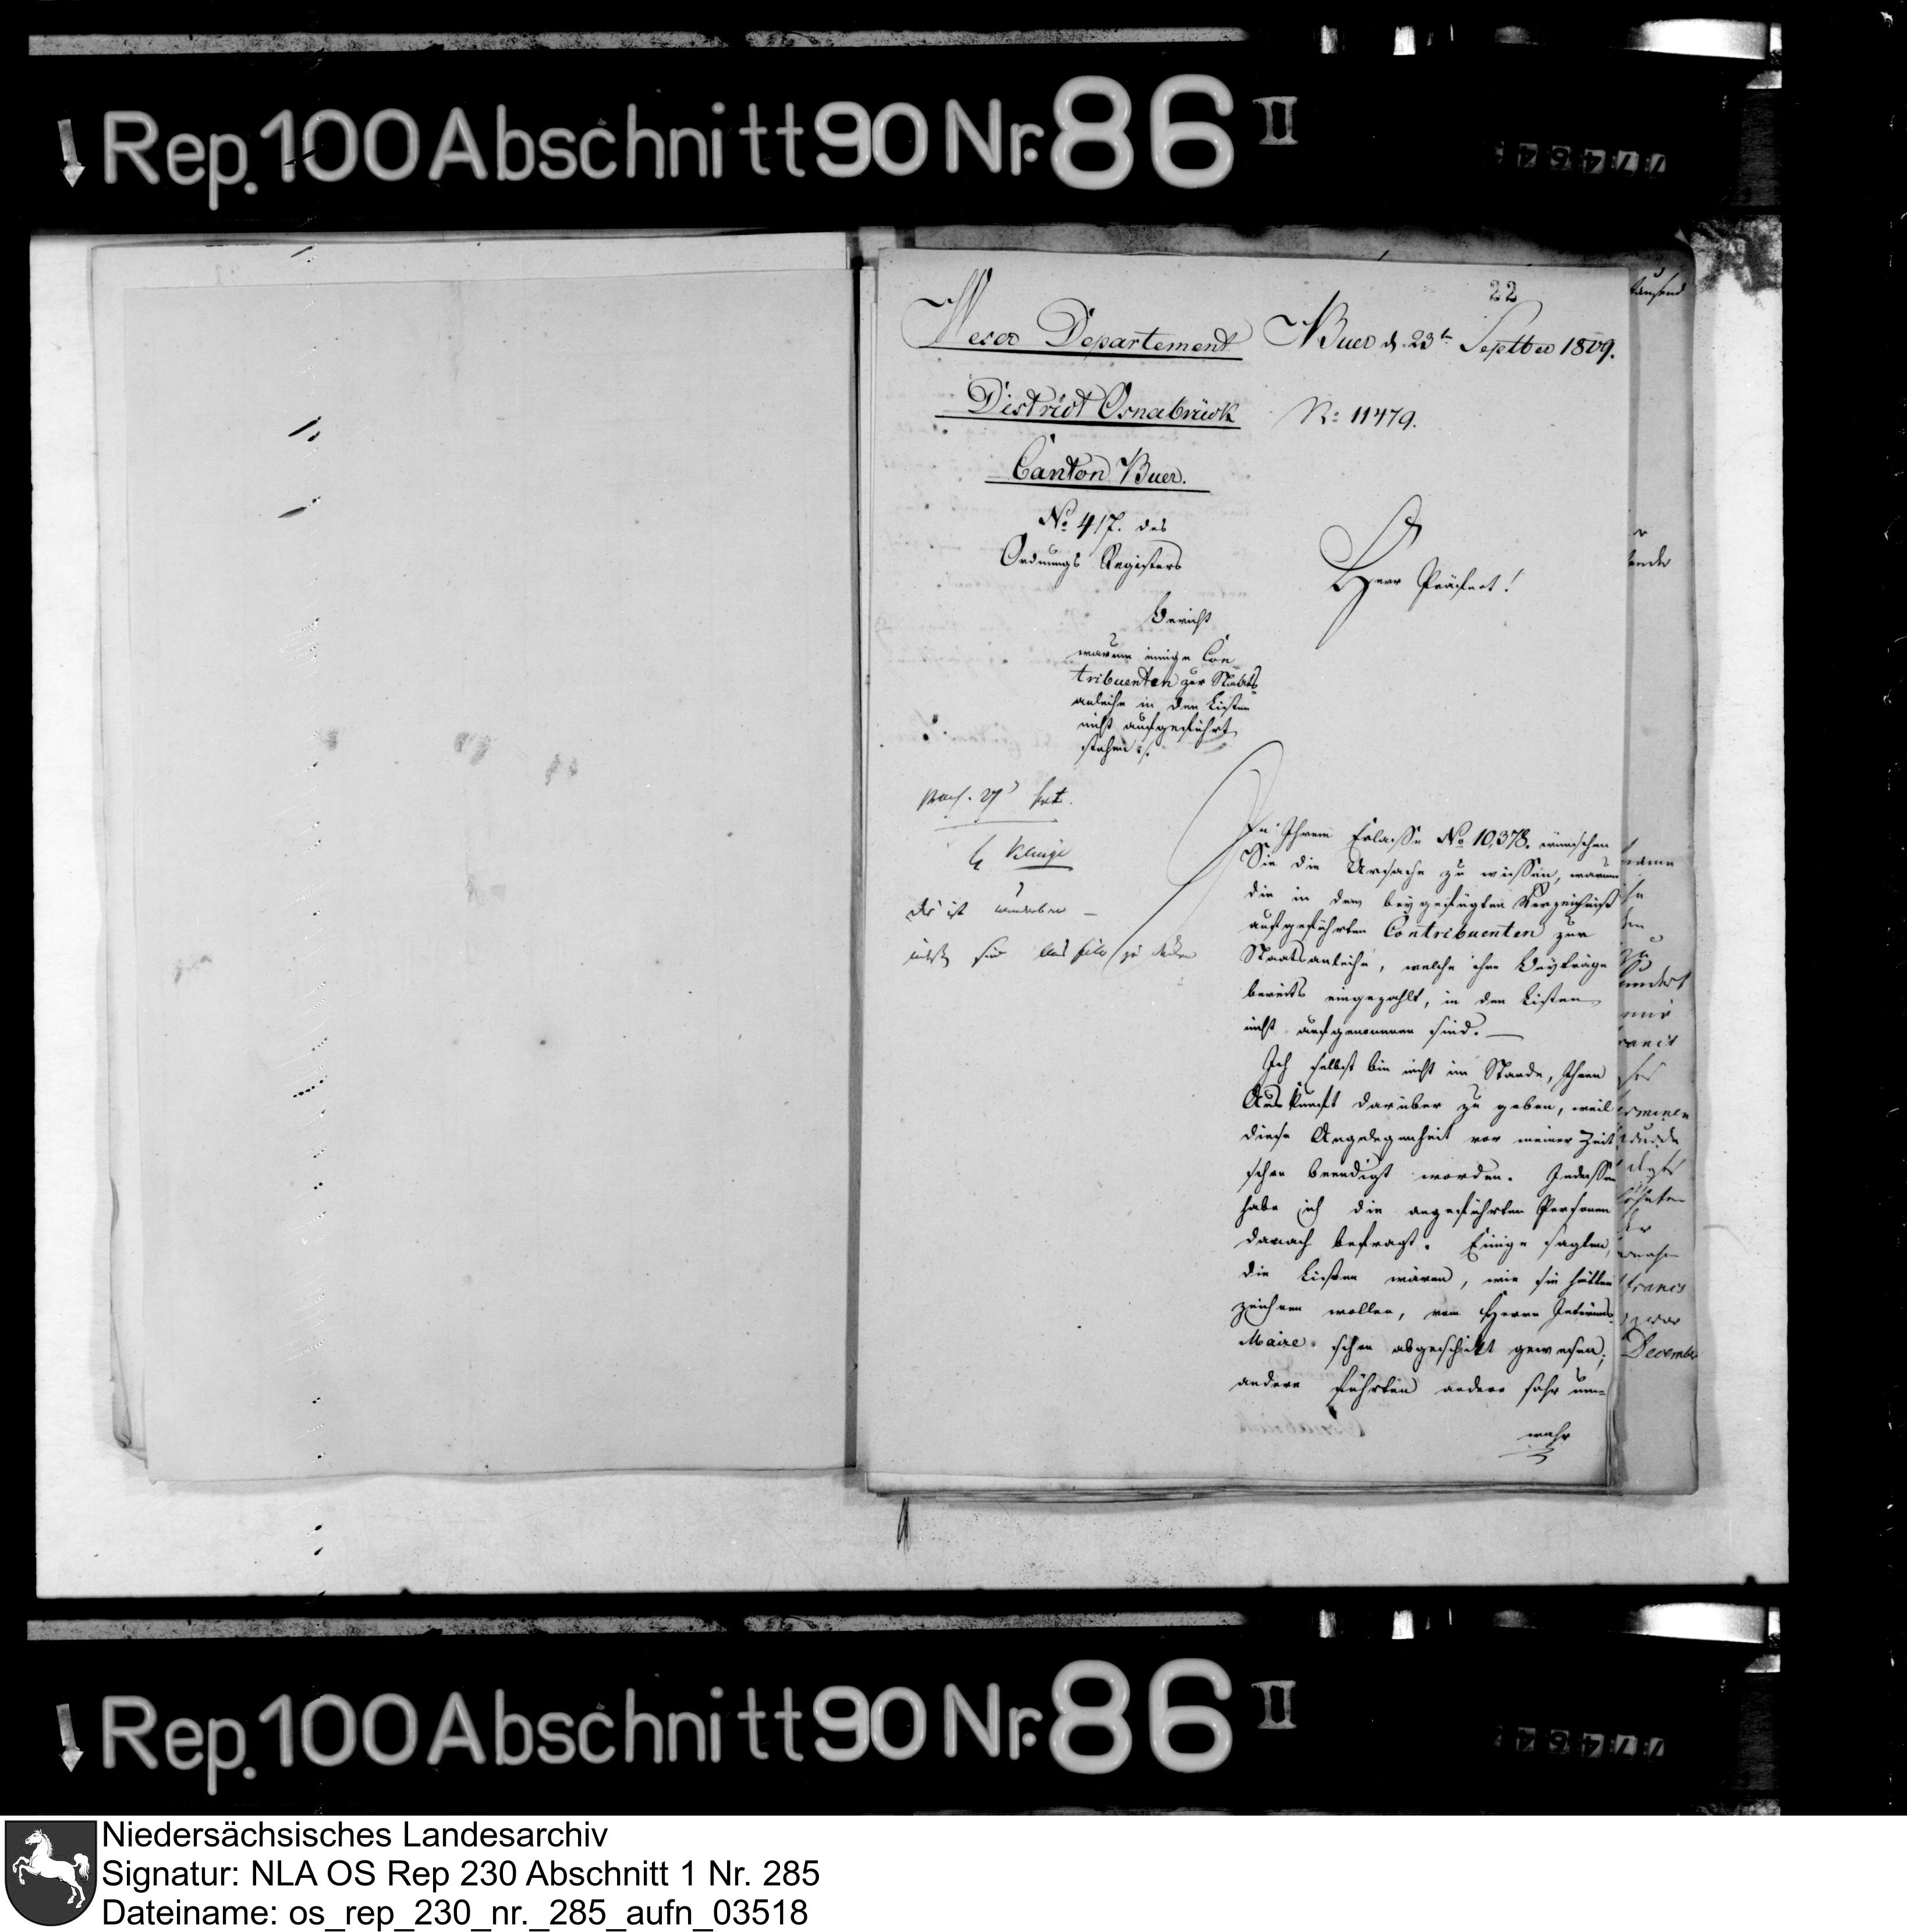 Rep. 100 Abschnitt 90 Nr. 86 II
22
Weser Departement
Buer d. 23ten Septber 1809.
District Osnabrück
N: 11479.
Canton Buer.
No 417. des
Ordnungs Registers
Herr Präfect!
Bericht
warum einige Con-
tribuenten zur Staats-
anleihe in den Listen
nicht aufgeführt
stehen
In Ihrem Erlasse No 10,378. wünschen
Sie die Ursache zu wissen, warum
die in dem beygefügten Verzeichniß
aufgeführten Contribuenten zur
Staatsanleihe, welche ihre Beyträge
bereits eingezahlt, in den Listen
nicht aufgenommen sind. —
Ich selbst bin nicht im Stande, Ihnen
Auskunft darüber zu geben, weil
diese Angelegenheit vor meiner Zeit
schon beendigt worden. Indessen
habe ich die angeführten Personen
danach befragt. Einige sagten,
die Listen wären, wie sie hätten
zeichnen wollen, vom Herrn Interims-
Maire schon abgeschickt gewesen;
andere führten andere sehr un=
wahr
December
Rep. 100 Abschnitt 90 Nr. 86 II
Niedersächsisches Landesarchiv
Signatur: NLA OS Rep 230 Abschnitt 1 Nr. 285
Dateiname: os_rep_230_nr._285_aufn_03518